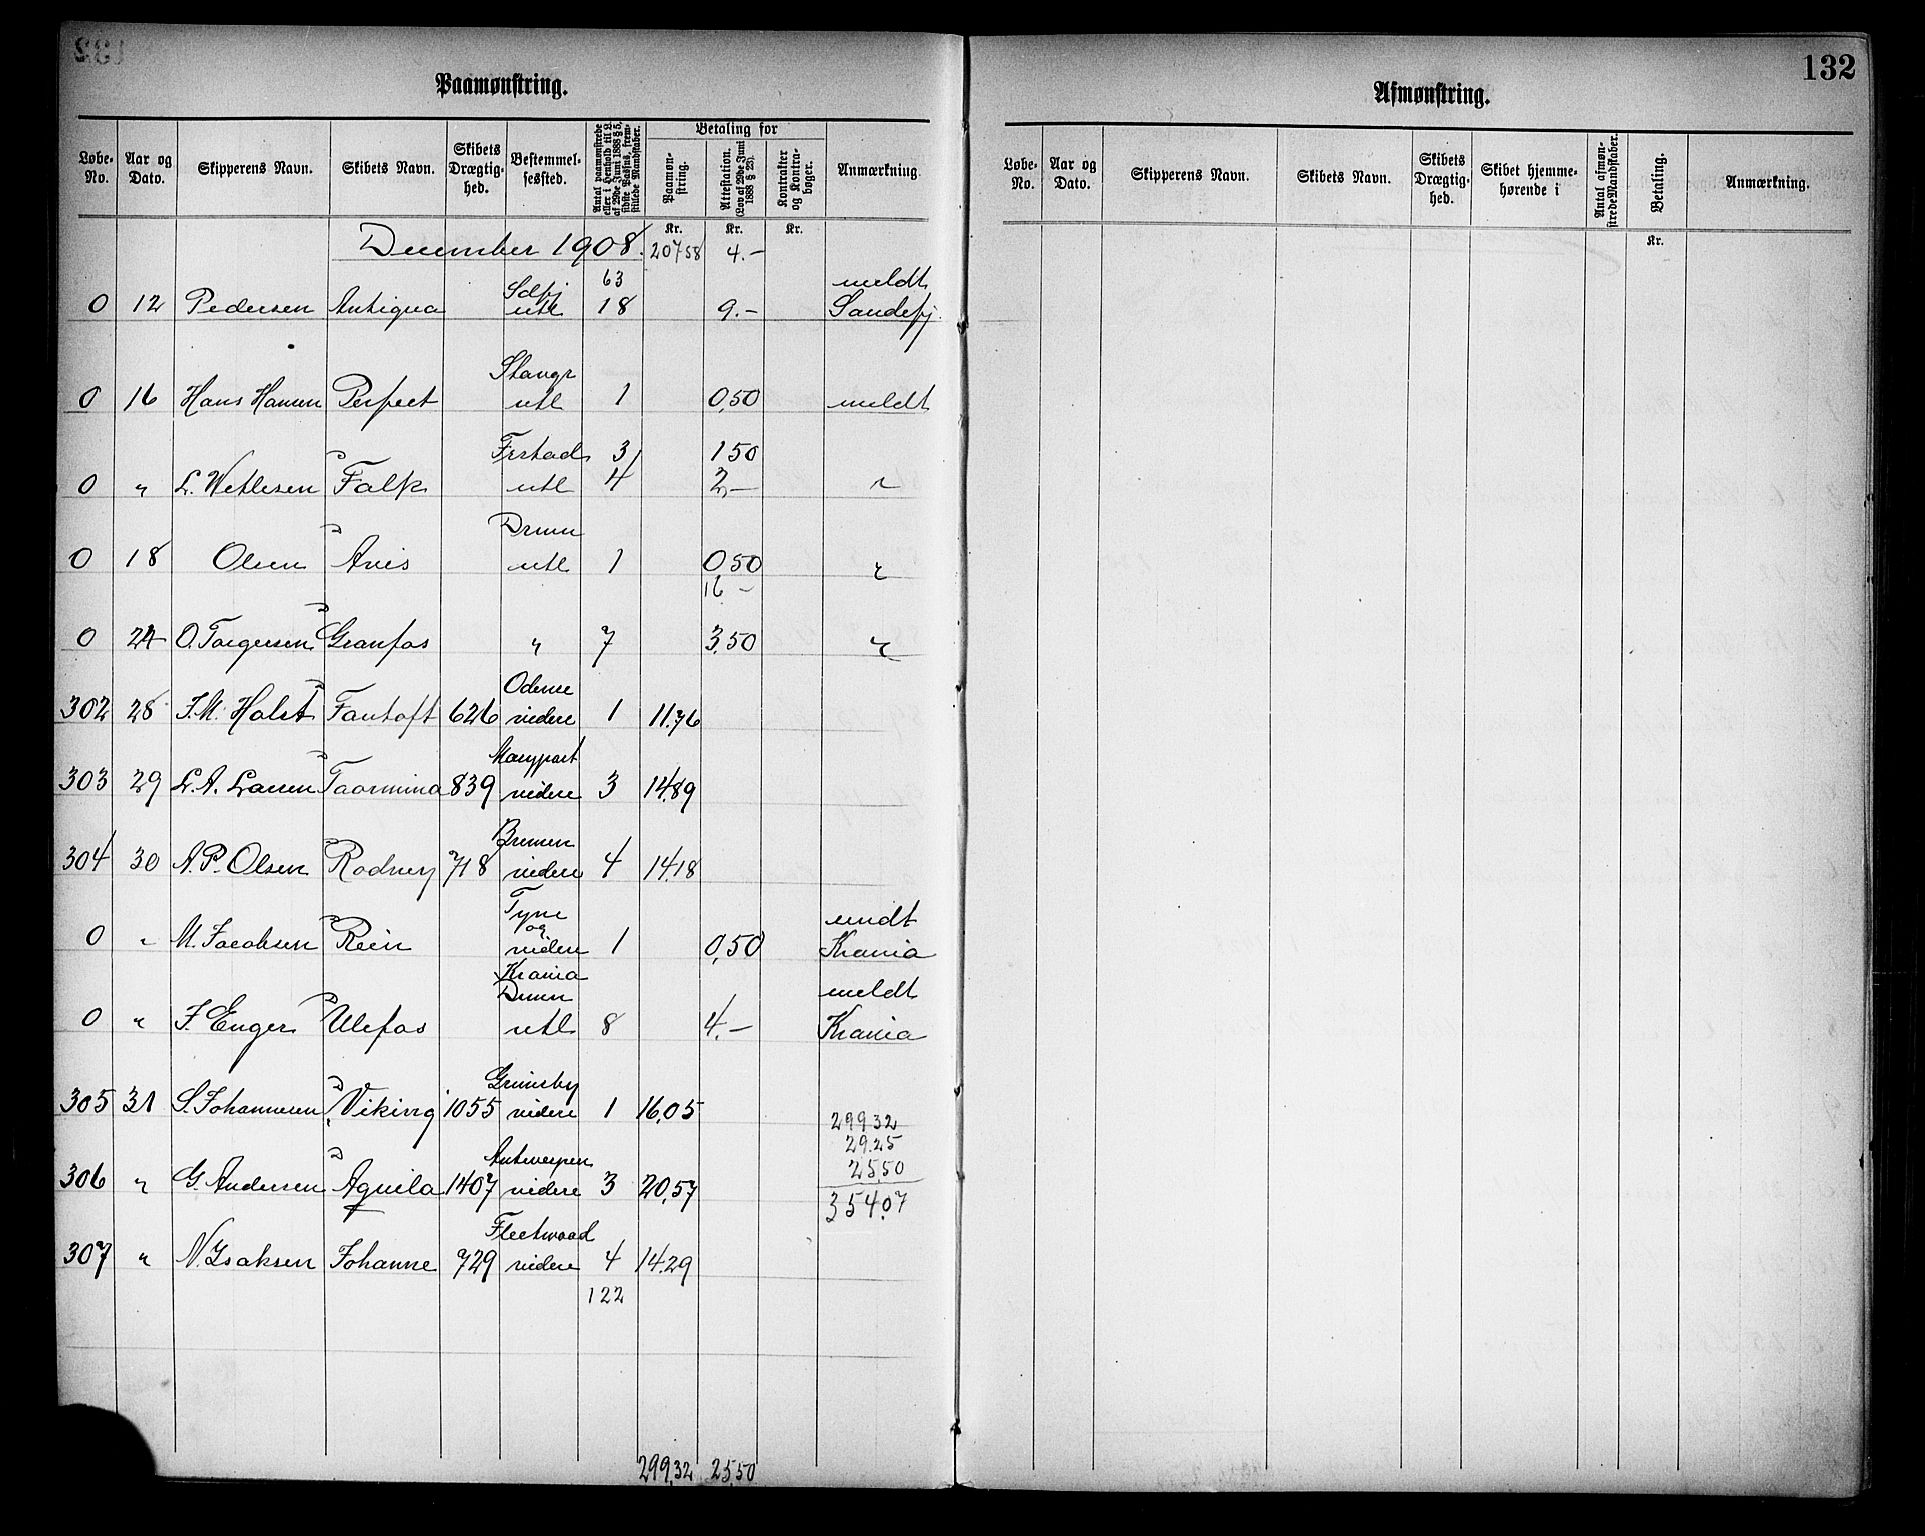 132
Paamønstring.
Løbe-No. | Aar og Dato. | Skipperens Navn. | Skibets Navn. | Skibets Drægtig-hed. | Bestemmel-sessted. | Antal paamønstrede eller i Henhold til L. af 29de Juni 1888 § 5, sidste Passus, frem-stillede Mandskaber. | Betaling for | Paamøn-string. | Attestation. (Lov af 29de Juni 1888 § 23). | Kontrakter og Kontra-bøger. | Anmærkning.
Kr. Kr. Kr.
December 1908. 207 58 4.-
63
0 12 Pedersen Antiqua Sdfj utl 18 9.- meldt Sandefj.
0 16 Hans Hansen Perfect Stangr utl 1 0,50 meldt
Frstad 3 1 50
0 " L. Wetlesen Falk utl 4 2,- "
0 18 Olsen Avis Drmn utl 1 0,50 "
16 -
0 24 O. Torgersen Granfos " 7 3,50 "
302 28 J. M. Holst Fantoft 626 Odense videre 1 11.76
303 29 L. A. Larsen Taormina 839 Maryport videre 3 14.89
304 30 A. P. Olsen Rodney 718 Bremen videre 4 14.18
0 " M. Jacobsen Rein Tyne og videre 1 0,50 meldt Krania
0 " F. Enger Ulefos Krania Drmn utl 8 4.- meldt Krania
305 31 S. Johannesen Viking 1055 Grimsby videre 1 16.05
306 " G. Andersen Aquila 1407 Antwerpen videre 3 20,57
307 " N. Isaksen Johanne 729 Fleetwood videre 4 14.29
122
299 32
29.25
25,50
354,07
299,32 25,50
Afmønstring.
132
Løbe-No. | Aar og Dato. | Skipperens Navn. | Skibets Navn. | Skibets Drægtig-hed. | Skibet hjemme-hørende i | Antal afmøn-strede Mandskaber. | Betaling. | Anmærkning.
Kr.